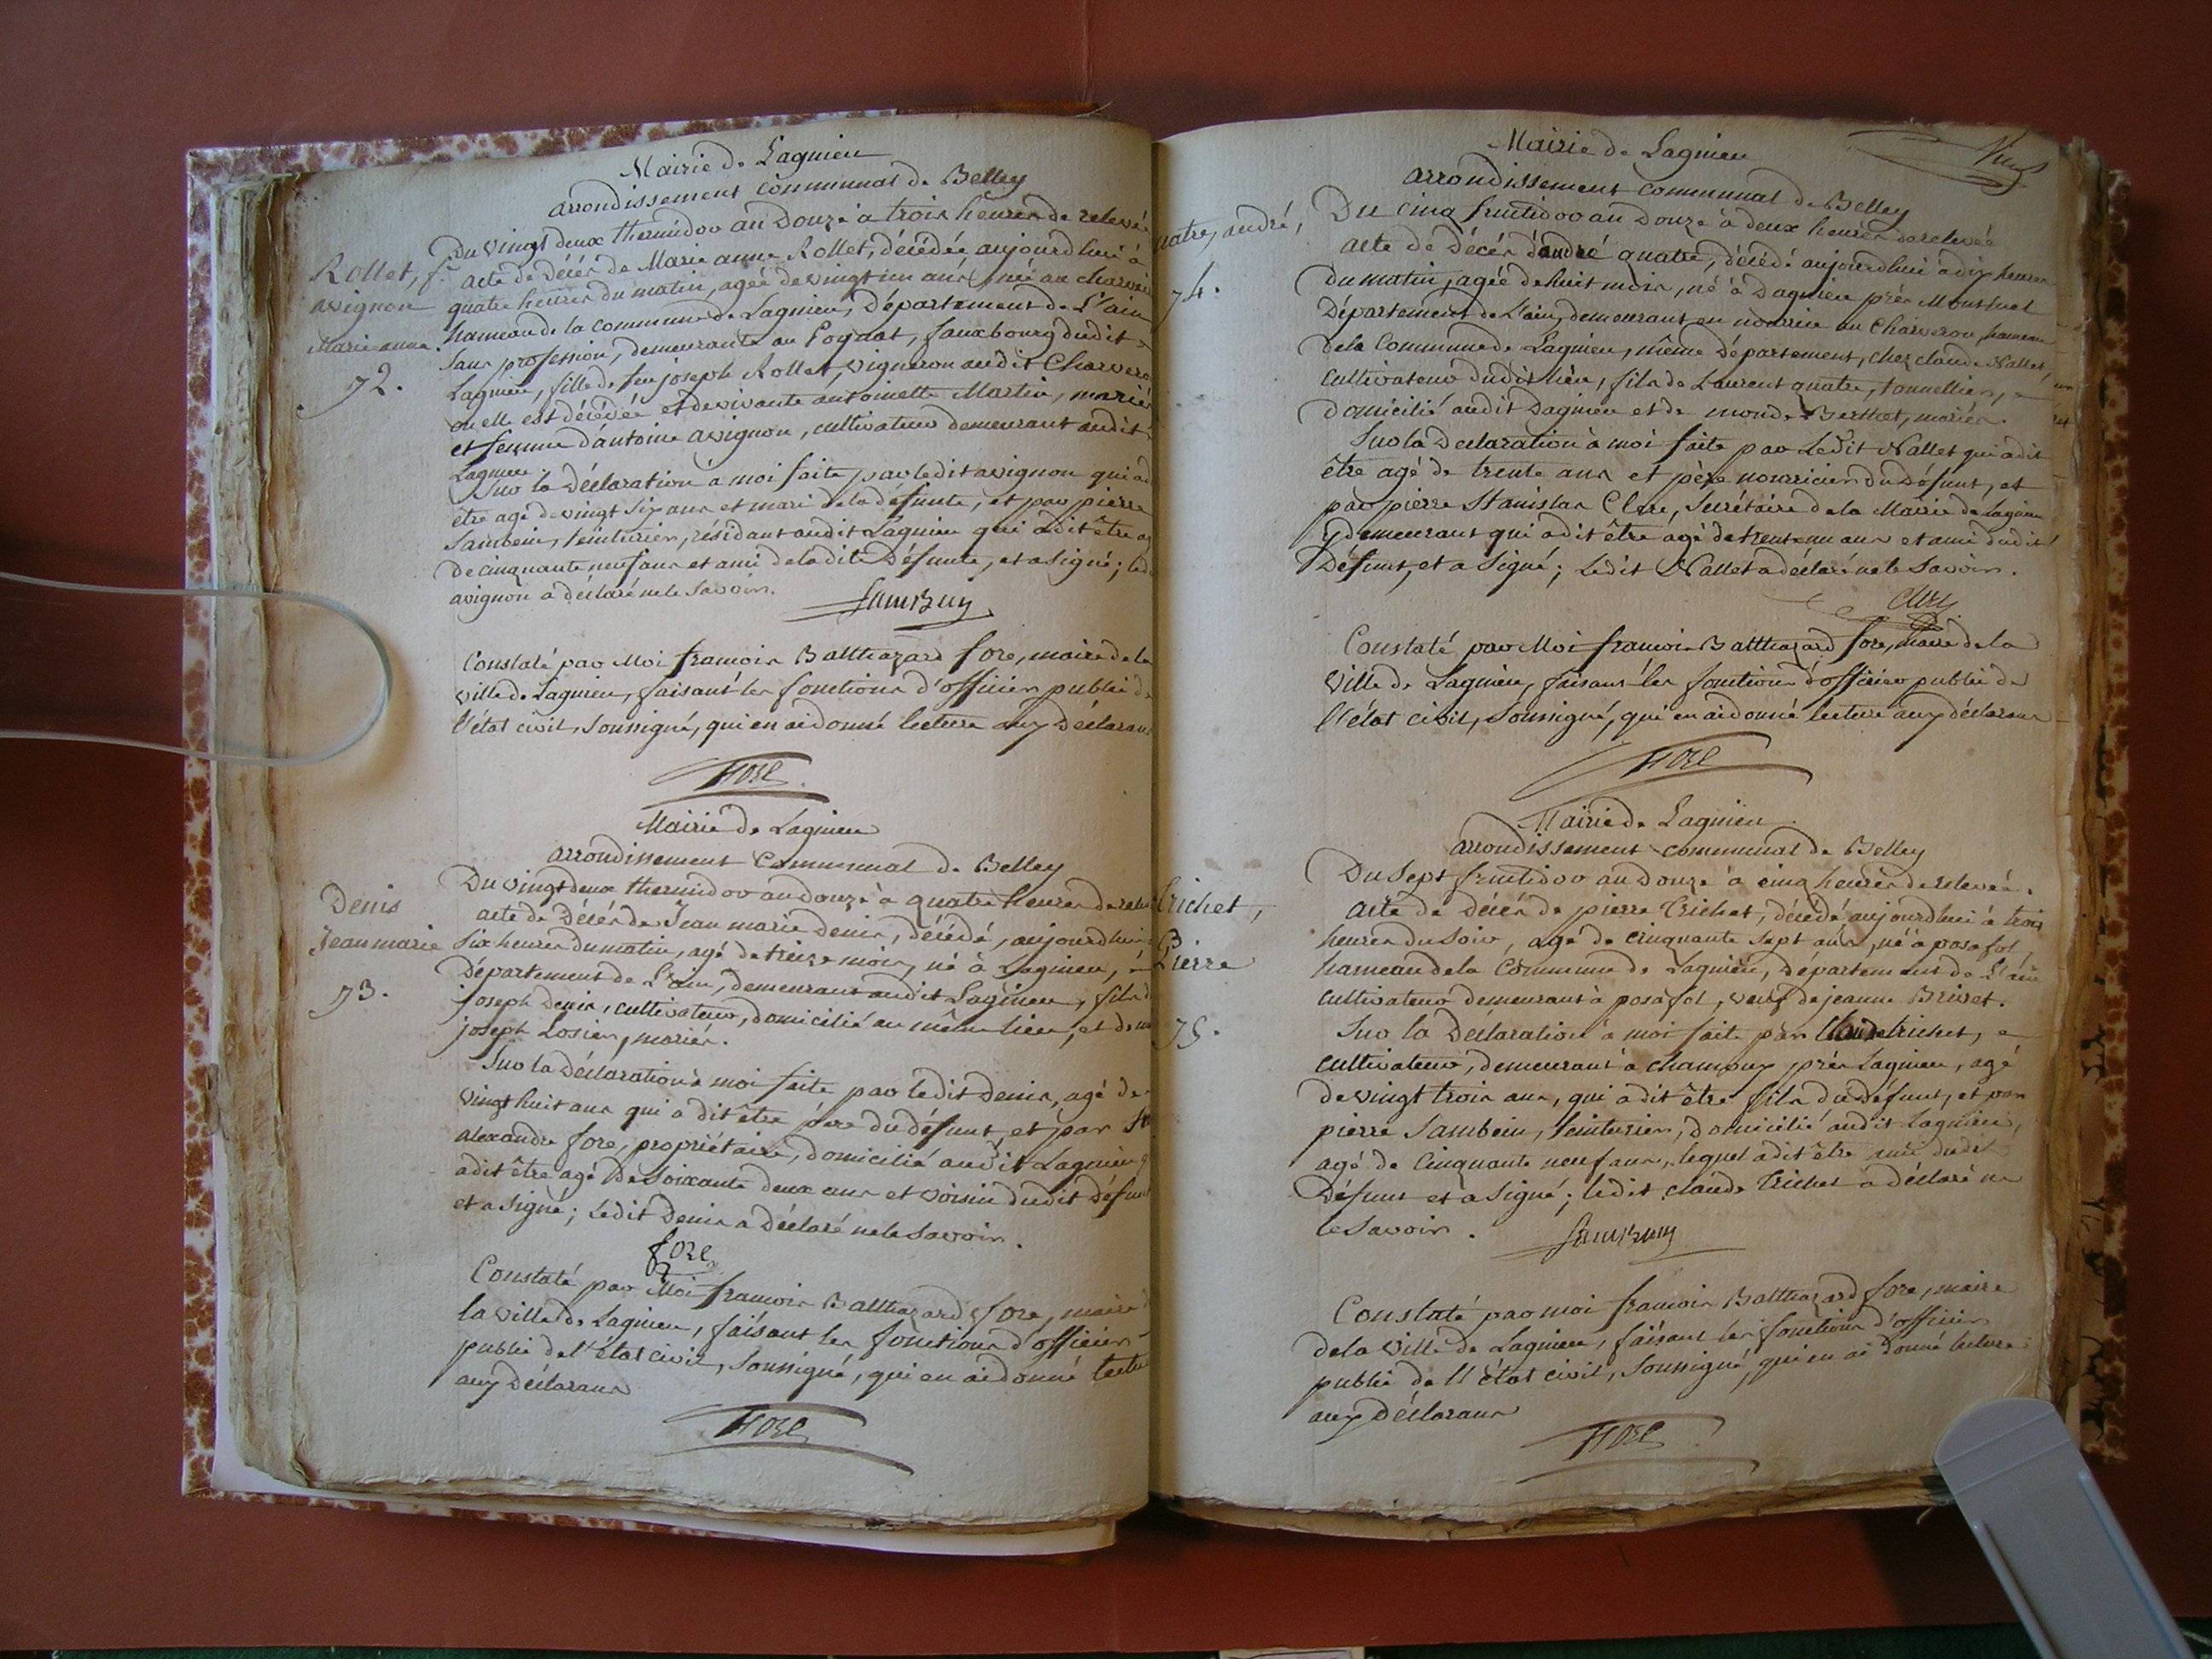 Mairie de Lagnieu
arrondissement communal de Belley
Du vingt deux thermidor an Douze à trois heures de relevée
acte de Décès de Marie anne Rollet, décédée aujourdhui à
quatre heures du matin, agée de vingt un ans, née au charvey
hameau de la commune de Lagnieu, Département de L'ain
sans profession, demeurante au Fognat, fauxbourg dudit
Lagnieu, fille de feu joseph Rollet, vigneron audit Charvero
ou elle est décédée et de vivante antoinette Martin, mariés
et femme d'antoine avignon, cultivateur demeurant audit
Lagnieu.
Sur la Déclaration à moi faite par ledit avignon qui a d
être agé de vingt six ans et mari de la défunte, et par pierre
Sambein, teinturier, résidant audit Lagnieu qui a dit être ag
de cinquante neuf ans et ami de ladite Défunte, et a signé; led
avignon a déclaré ne le savoir.
Rollet, fe
avignon
Marie anne
72.
Constaté par Moi francois Balthazard fore, maire de la
ville de Lagnieu, faisant les fonctions d'officier public de
l'état civil, soussigné, qui en ai donné lecture aux Déclarans
Fore
Mairie de Lagnieu
arrondissement Communal de Belley
Du vingt deux thermidor an douze à quatre heures de rele
acte de Décès de Jean marie denis, décédé, aujourdhui
six heures du matin, agé de treize mois, né à Lagnieu,
Département de L'ain, demeurant audit Lagnieu, fils d
joseph Denis, cultivateur, domicilié au même lieu, et de
joseph Losier, mariés.
Denis
Jean marie
73.
Sur la Déclaration à moi faite par ledit denis, agé de
vingt huit ans qui a dit être père du défunt, et par
alexandre fore, propriétaire, domicilié audit Lagnieu q
a dit être agé de soixante deux ans et voisin dudit Défunt
et a signé; ledit Denis a Déclaré ne le savoir.
fore
Constaté par Moi francois Balthazard fore, maire d
la ville de Lagnieu, faisant les fonctions d'officier
public de l'état civil, soussigné, qui en ai donné lectu
aux Déclarans
Fore
Mairie de Lagnieu
arrondissement communal de Belley
Du cinq fructidor an Douze à deux heures de relevée
acte de Décès d'andré quatre, décédé aujourdhui à dix heures
du matin, agée de huit mois, né à Dagnieu près Montluel
Département de L'ain, demeurant en nourrice au Charveron hameau
de la Commune de Lagnieu, même Département, chez claude Nallet,
cultivateur dudit lieu, fils de Laurent quatre, tonnellier,
domicilié audit Dagnieu et de monde Berthet, mariés.
uatre, andré,
74.
Sur la Declaration à moi faite par Ledit Nallet qui a dit
être agé de trente ans et père nourricier du Défunt, et
par pierre Stanislas Clere, Secrétaire de la Mairie de Lagnieu
y demeurant qui a dit être agé de trente un ans et ami dudit
Défunt, et a signé; ledit Nallet a déclaré ne le savoir.
Constaté par Moi francois Balthazard fore, maire de la
ville de Lagnieu, faisant les fonctions d'officier public de
l'état civil, soussigné, qui en ai donné lecture aux déclarans
Fore
Mairie de Lagnieu.
arrondissement communal de Belley
Du Sept fructidor an Douze à cinq heures de relevée.
acte de Décès de pierre Trichet, décédé aujourdhui à trois
heures du soir, agé de cinquante sept ans, né à posafol,
hameau de la Commune de Lagnieu, Département de L'ain
cultivateur demeurant à posafol, veuf de jeanne Brivet.
Trichet,
Pierre
75.
Sur la Déclaration à moi fait par Claude trichet,
cultivateur, demeurant à chamoux près Lagnieu, agé
de vingt trois ans, qui a dit être fils du défunt, et par
pierre Sambein, teinturier, domicilié audit Lagnieu,
agé de Cinquante neuf ans, lequel a dit être ami dudit
Défunt et a signé; ledit claude Trichet a déclaré ne
le Savoir.
Constaté par moi francois Balthazard fore, maire
de la ville de Lagnieu, faisant les fonctions d'officier
public de l'état civil, soussigné, qui en ai donné lecture
aux Déclarans
Fore